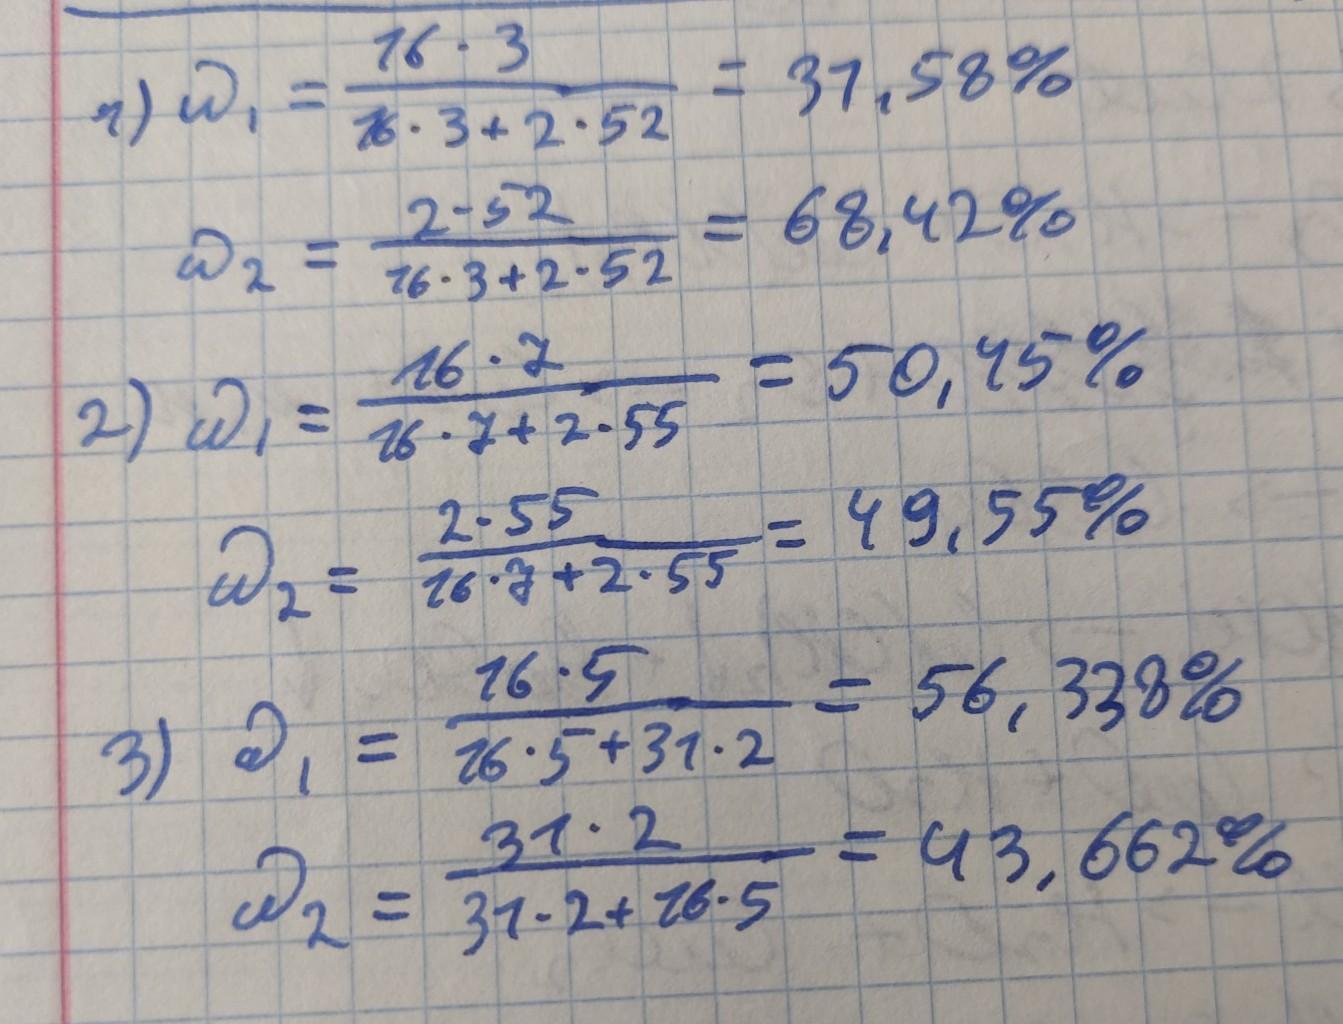 1) ω₁ = (16·3)/(16·3+2·52) = 31,58%
ω₂ = (2·52)/(16·3+2·52) = 68,42%
2) ω₁ = (16·7)/(16·7+2·55) = 50,45%
ω₂ = (2·55)/(16·7+2·55) = 49,55%
3) ω₁ = (16·5)/(16·5+31·2) = 56,338%
ω₂ = (31·2)/(31·2+16·5) = 43,662%